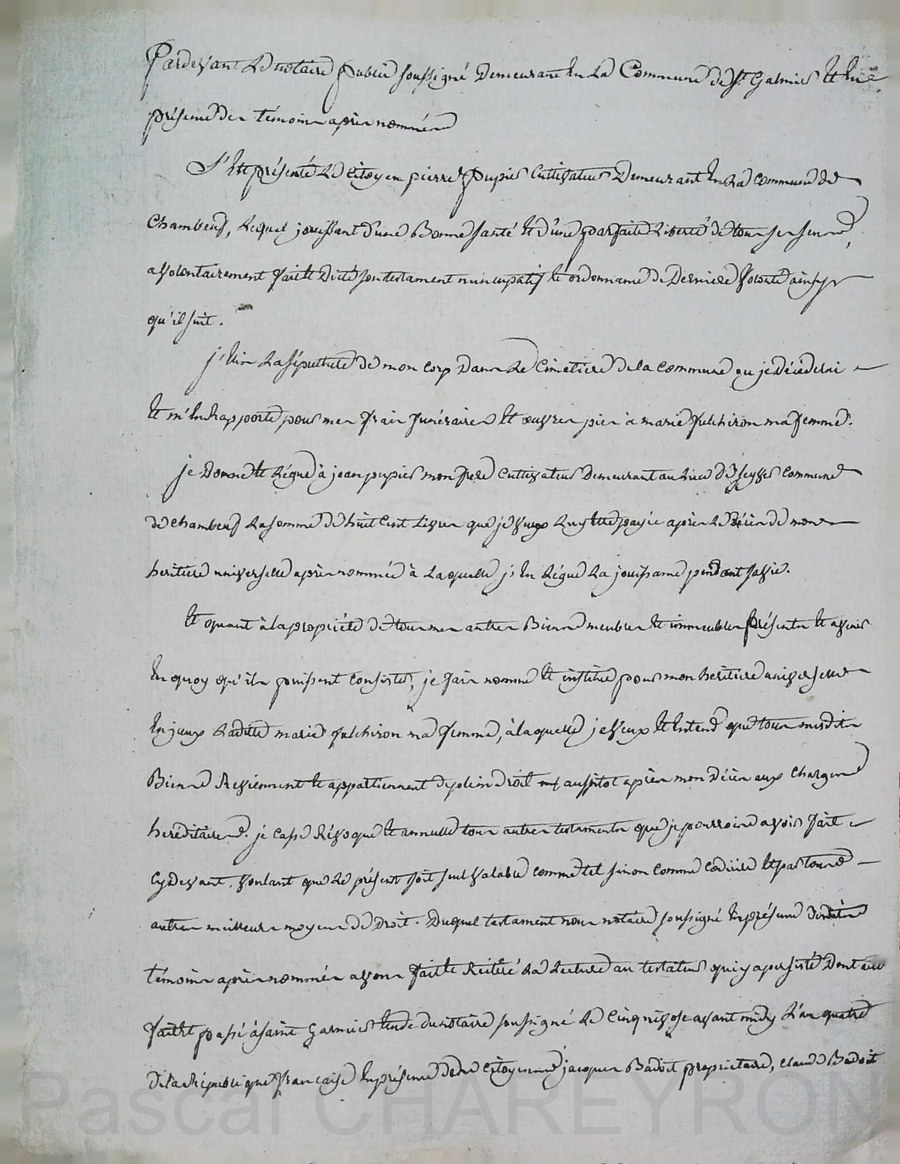 Pardevant Le notaire public soussigné Demeurant En La Commune de St Galmier Et En
présence des témoins après nommés
S'Est présenté Le Citoyen pierre pupier Cultivateur Demeurant En La Commune de
Chambeuf, Lequel jouissant d'une Bonne santé Et d'une parfaite Liberté de tous ses sens,
a volontairement fait Et Dicté son testament nuncupatif Et ordonnance de Derniere volonté ainsy
qu'il suit.
j'Elis La sépulture de mon Corp Dans Le Cimetiere de la Commune ou je décéderai
Et m'En Rapporte pour mes frais funéraires Et œuvres pies à marie fulchiron ma femme.
je Donne Et Légue à jean pupier mon frere Cultivateur Demeurant au Lieu de Commune
de Chambeuf La somme de huit Cent Livres que je veux Luy Etre payée après Le Décès de mon
heritiere universelle après nommée à Laquelle j'En Légue La jouissance pendant sa vie.
Et quant à la propriété de tous mes autres Biens meubles Et immeubles présents Et avenir
En quoy qu'ils puissent Consister, je fais nomme Et institue pour mon heritiere universelle
En jceux Ladite marie fulchiron ma femme, à laquelle je veux Et Entend que tous mesdits
Biens Reviennent Et appartiennent de plein Droit aussitot après mon Décès aux Charges
hereditaires. je Casse Révoque Et annulle tous autres testaments que je pourrois avoir fait
Cy devant. voulant que Le présent soit seul valable comme tel sinon comme Codicile Et par tous
autres meilleurs moyens de Droit. Duquel testament nous notaire soussigné En présence desdits
témoins après nommés avons fait Et Reitéré La Lecture au testateur qui y a persisté Dont acte
fait Et passé à saint Galmier Etude du notaire soussigné Le Cinq nivose avant midy L'an quatre
de la République francaise En présence des Citoyens jacques Badoit propriétaire, Claude Badoit
Pascal CHAREYRON